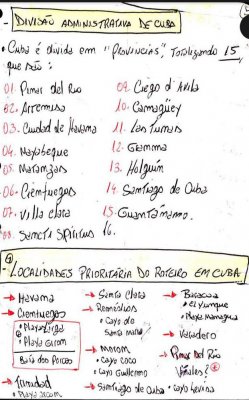 - DIVISÃO ADMINISTRATIVA DE CUBA
• Cuba é divida em "Províncias", Totalizando 15,
que são:
01. Pinar del Rio
02. Artemisa
03. Ciudad de Havana
04. Mayabeque
05. Matanzas
06. Cienfuegos
07. Villa Clara
08. Sancti Spíritus
09. Ciego d'Avila
10. Camagüey
11. Las Tunas
12. Gramma
13. Holguín
14. Santiago de Cuba
15. Guantánamo.
16.
- LOCALIDADES PRIORITÁRIA DO ROTEIRO EM CUBA:
→ Havana
→ Cienfuegos
• Playa Larga
• Playa Giron
Baía dos Porcos
→ Trinidad
• Playa Ancon
→ Santa Clara
→ Remedios
• Cayo de
Santa Maria
→ Moron
• Cayo Coco
• Cayo Guillermo
→ Santiago de Cuba
→ Baracoa
• El Yunque
• Playa Managua
→ Varadero
→ Pinar del Río
Viñales?
• Cayo Levisa